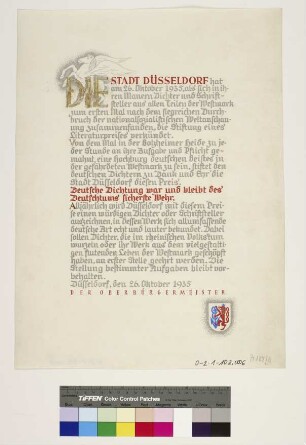 DIE STADT DÜSSELDORF hat
am 26. Oktober 1935, als sich in ih-
ren Mauern Dichter und Schrift-
steller aus allen Teilen der Westmark
zum ersten Mal nach dem siegreichen Durch-
bruch der nationalsozialistischen Weltanschau-
ung zusammenfanden, die Stiftung eines
Literaturpreises verkündet.
Von dem Mal in der Golzheimer Heide zu je-
der Stunde an ihre Aufgabe und Pflicht ge-
mahnt, eine Hochburg deutschen Geistes in
der gefährdeten Westmark zu sein, stiftet den
deutschen Dichtern zu Dank und Ehr' die
Stadt Düsseldorf diesen Preis.
Deutsche Dichtung war und bleibt des
Deutschtums sicherste Wehr.
Alljährlich wird Düsseldorf mit diesem Preis
einen würdigen Dichter oder Schriftsteller
auszeichnen, in dessen Werk sich allumfassende
deutsche Art echt und lauter bekundet. Dabei
sollen Dichter, die im rheinischen Volkstum
wurzeln oder ihr Werk aus dem vielgestalti-
gen flutenden Leben der Westmark geschöpft
haben, an erster Stelle geehrt werden. Die
Stellung bestimmter Aufgaben bleibt vor-
behalten.
Düsseldorf, den 26. Oktober 1935
DER OBERBÜRGERMEISTER
TIFFEN Color Control Patches